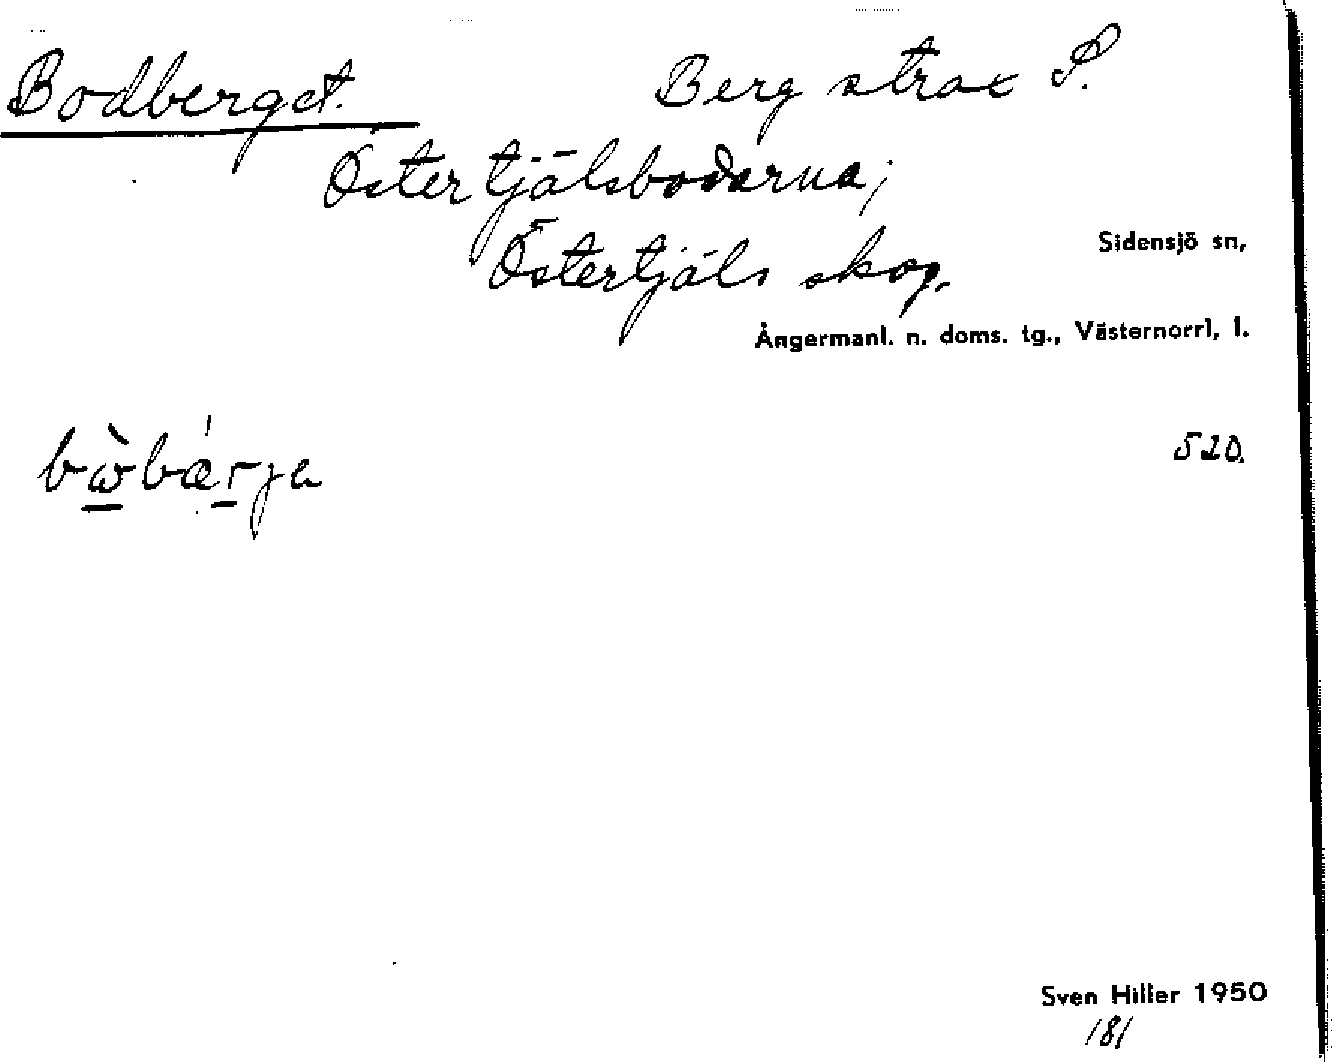 Bodberget. Berg strax S.
Östertjälsbodarna;
Östertjäls skog.
Sidensjö sn,
Ångermanl. n. doms. tg., Västernorrl, l.
bὼbærja
520.
Sven Hiller 1950
181